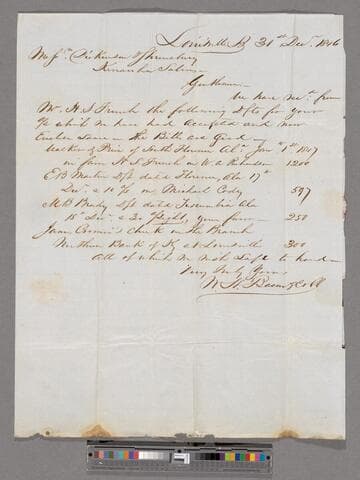 Louisville Ky 31st Decr 1846
Messrs Dickinson & Shrewsbury
Kanawha Salines
Gentlemen
We have recd from
Mr H. S. French the following dfts for your
a/c which we have had accepted and now
Enclose same — the Bills are good
of North Florence Ala Jany 1st 1847
in favor H S French on W A 1200
E B Martin Dft dated Florence, Ala 17th
Decr @ 10 m on Michael Cody 597
M B dft dated Tuscumbia Ala
15 Decr @ your favor 250
Check on the Branch
Northern Bank of Ky at Louisville 300
All of which we wish safe to hand —
Very Truly Yours
W H & Co